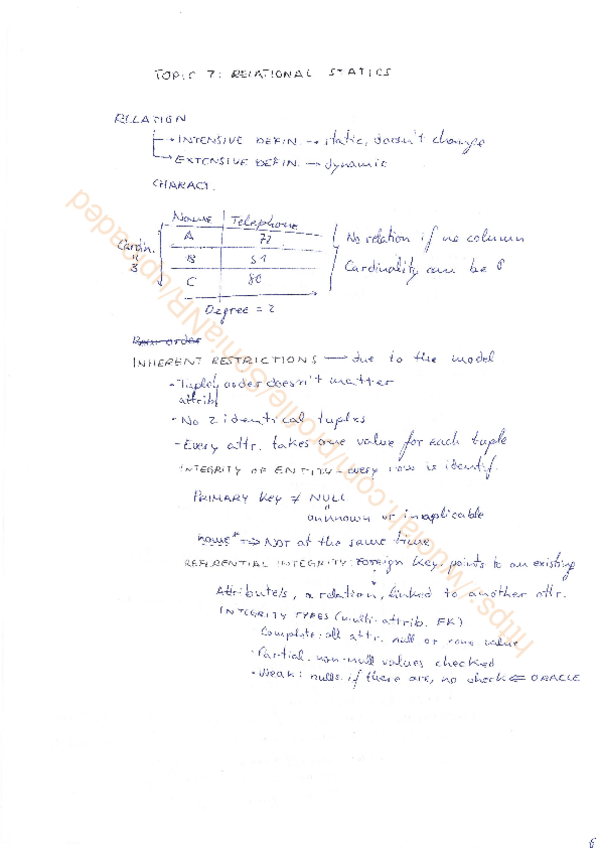 TOPIC 7: RELATIONAL STATICS
RELATION
→ INTENSIVE DEFIN. → static, doesn't change
→ EXTENSIVE DEFIN. → dynamic
CHARACT.
Name Telephone
A 72
B 51
C 80
Cardin. = 3
No relation if no column
Cardinality can be 0
Degree = 2
INHERENT RESTRICTIONS — due to the model
- Tuple/ order doesn't matter
attrib/
- No 2 identical tuples
- Every attr. takes one value for each tuple
INTEGRITY OF ENTITY - every row is identif.
PRIMARY KEY ≠ NULL
"
unknown or inapplicable
name* → NOT at the same time
REFERENTIAL INTEGRITY: Foreign key. points to an existing
Attribute/s, relation, linked to another attr.
INTEGRITY TYPES (multi-attrib. FK)
Complete: all attr. null or none value
· Partial. non-null values checked
· Weak: nulls. if there are, no check ⇐ ORACLE
https://wuolah.com/profile/SoniaNR/uploaded
6